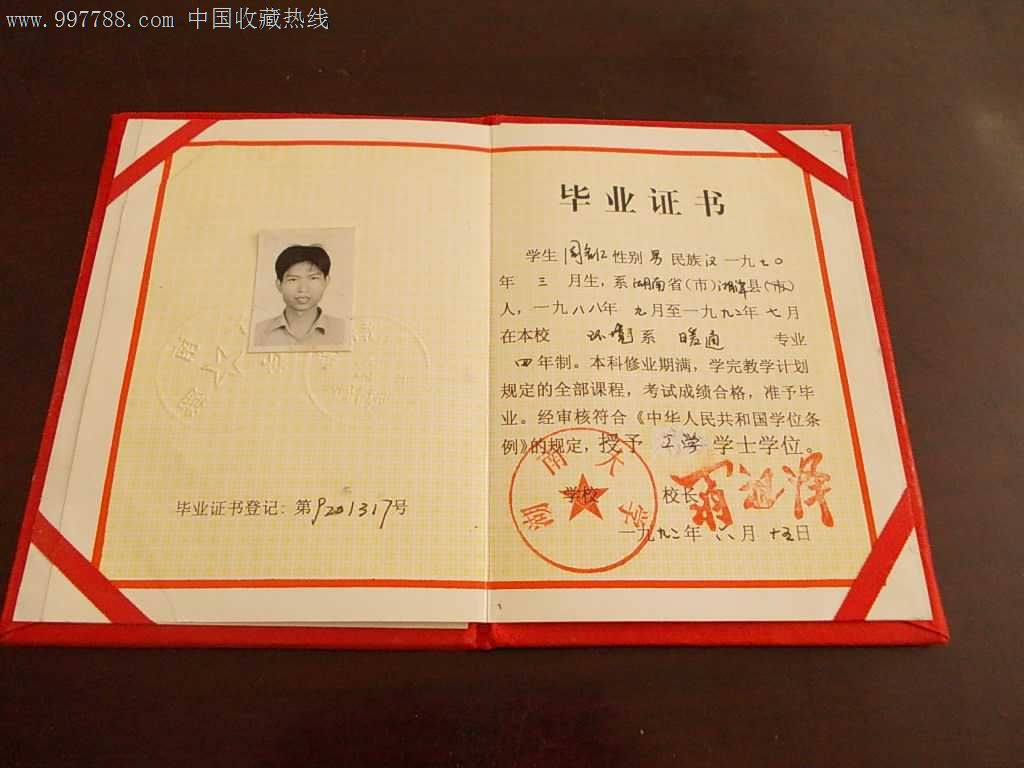 www.997788.com 中国收藏热线
毕业证书
学生 性别 男 民族 汉 一九七〇
年 三 月生，系 湖南 省(市) 县(市)
人，一九八八年 九月至一九九二年 七月
在本校 环境 系 暖通 专业
四年制。本科修业期满，学完教学计划
规定的全部课程，考试成绩合格，准予毕
业。经审核符合《中华人民共和国学位条
例》的规定，授予 工学 学士学位。
湖南大学
学校 校长
一九九二年 六月 十五日
毕业证书登记：第9201317号